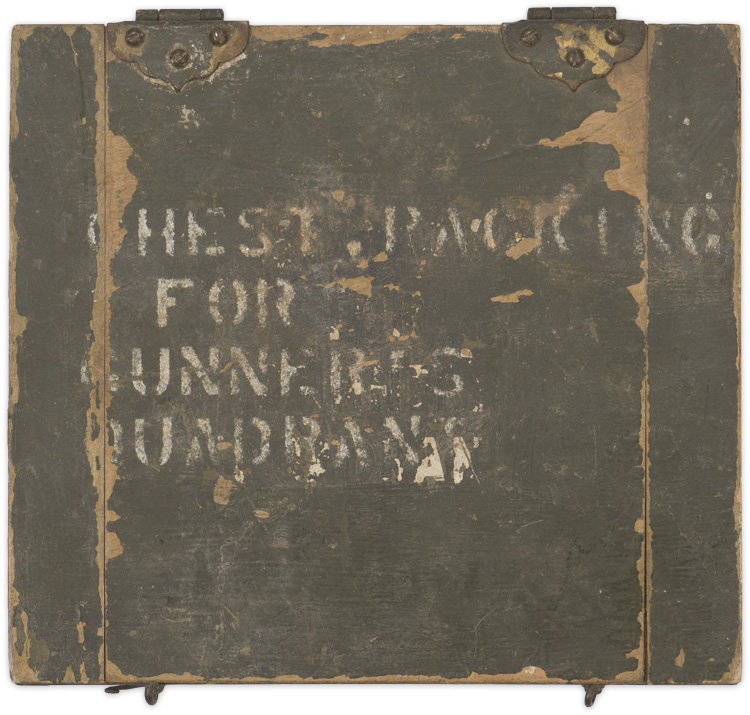 CHEST, PACKING
FOR
GUNNER'S
QUADRANT